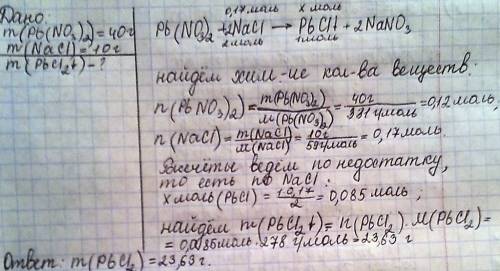 Дано:
m(Pb(NO₃)₂)=40г
m(NaCl)=10г
m(PbCl₂↓)-?
0,17моль х моль
Pb(NO₃)₂+2NaCl→PbCl↓+2NaNO₃
2моль 1моль
найдём хим-ие кол-ва веществ:
n(PbNO₃)₂)=m(Pb(NO₃)₂)/M(Pb(NO₃)₂)=40г/331г/моль=0,12моль
n(NaCl)=m(NaCl)/M(NaCl)=10г/59г/моль=0,17моль.
Рассчёты ведём по недостатку,
то есть по NaCl:
х моль(PbCl)=1·0,17/2=0,085моль;
найдём m(PbCl₂↓)=n(PbCl₂)·M(PbCl₂)=
=0,085моль·278г/моль=23,63г
Ответ: m(PbCl₂)=23,63г.